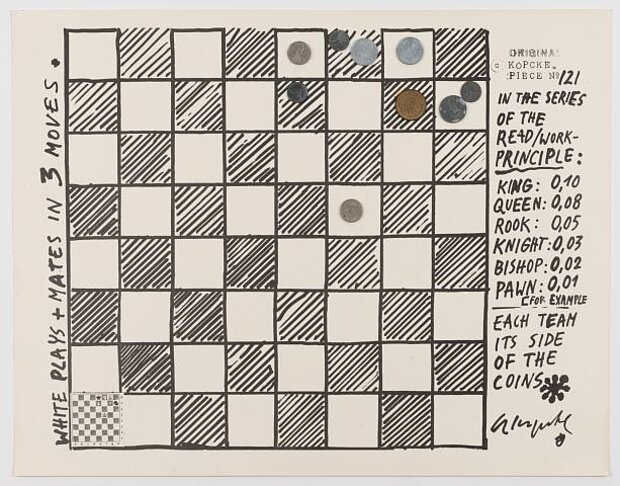 WHITE PLAYS + MATES IN 3 MOVES.
ORIGINAL
KÖPCKE.
PIECE Nº 121
IN THE SERIES
OF THE
READ/WORK-
PRINCIPLE:
KING: 0,10
QUEEN: 0,08
ROOK: 0,05
KNIGHT: 0,03
BISHOP: 0,02
PAWN: 0,01
(FOR EXAMPLE
EACH TEAM
ITS SIDE
OF THE
COINS